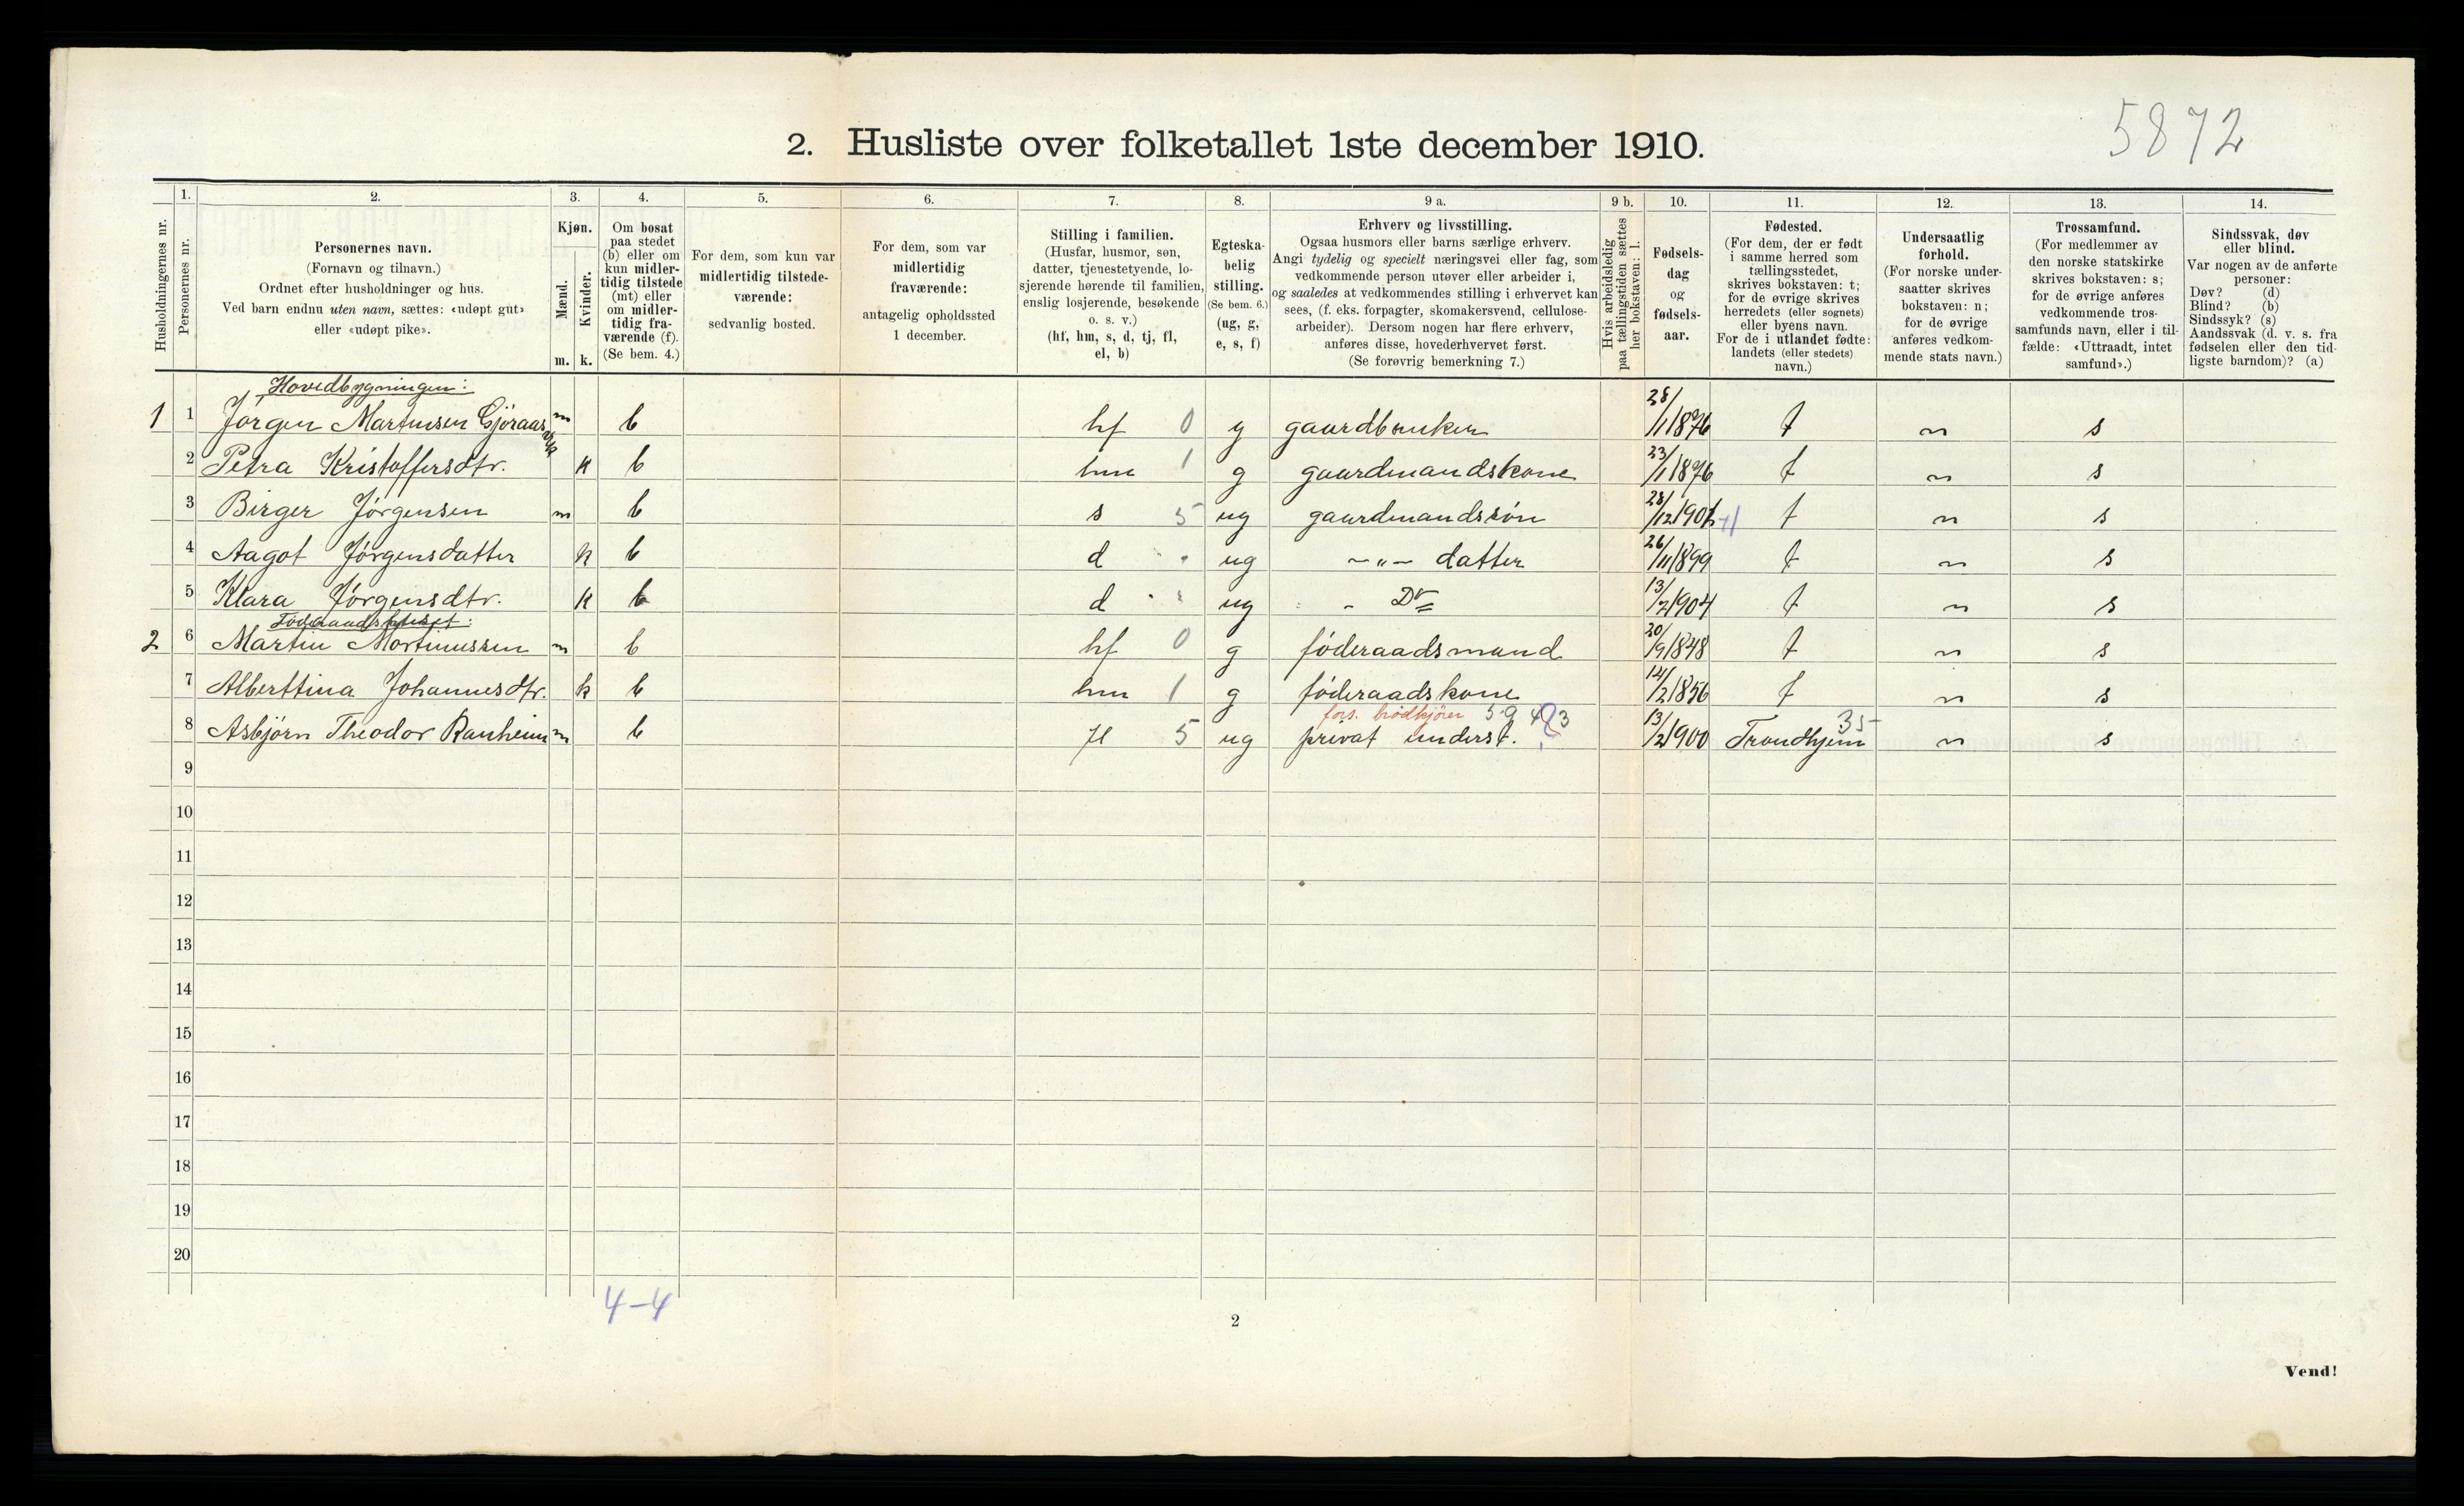 5872
2. Husliste over folketallet 1ste december 1910.
Husholdningernes nr.
1.
Personernes nr.
2.
Personernes navn.
(Fornavn og tilnavn.)
Ordnet efter husholdninger og hus.
Ved barn endnu uten navn, sættes: «udøpt gut»
eller «udøpt pike».
3.
Kjøn.
Mænd.
Kvinder.
m. k.
4.
Om bosat
paa stedet
(b) eller om
kun midler-
tidig tilstede
(mt) eller
om midler-
tidig fra-
værende (f).
(Se bem. 4.)
5.
For dem, som kun var
midlertidig tilstede-
værende:
sedvanlig bosted.
6.
For dem, som var
midlertidig
fraværende:
antagelig opholdssted
1 december.
7.
Stilling i familien.
(Husfar, husmor, søn,
datter, tjenestetyende, lo-
sjerende hørende til familien,
enslig losjerende, besøkende
o. s. v.)
(hf, hm, s, d, tj, fl,
el, b)
8.
Egteska-
belig
stilling.
(Se bem. 6.)
(ug, g,
e, s, f)
9 a.
Erhverv og livsstilling.
Ogsaa husmors eller barns særlige erhverv.
Angi tydelig og specielt næringsvei eller fag, som
vedkommende person utøver eller arbeider i,
og saaledes at vedkommendes stilling i erhvervet kan
sees, (f. eks. forpagter, skomakersvend, cellulose-
arbeider). Dersom nogen har flere erhverv,
anføres disse, hovederhvervet først.
(Se forøvrig bemerkning 7.)
9 b.
Hvis arbeidsledig
paa tællingstiden sættes
her bokstaven: l.
10.
Fødsels-
dag
og
fødsels-
aar.
11.
Fødested.
(For dem, der er født
i samme herred som
tællingsstedet,
skrives bokstaven: t;
for de øvrige skrives
herredets (eller sognets)
eller byens navn.
For de i utlandet fødte:
landets (eller stedets)
navn.)
12.
Undersaatlig
forhold.
(For norske under-
saatter skrives
bokstaven: n;
for de øvrige
anføres vedkom-
mende stats navn.)
13.
Trossamfund.
(For medlemmer av
den norske statskirke
skrives bokstaven: s;
for de øvrige anføres
vedkommende tros-
samfunds navn, eller i til-
fælde: «Uttraadt, intet
samfund».)
14.
Sindssvak, døv
eller blind.
Var nogen av de anførte
personer:
Døv? (d)
Blind? (b)
Sindssyk? (s)
Aandssvak (d. v. s. fra
fødselen eller den tid-
ligste barndom)? (a)
Hovedbygningen:
1 1 Jørgen Martinsen Gjøraas m b hf 0 g gaardbruker 28/1 1876 t n s
2 Petra Kristoffersdtr. k b hm 1 g gaardmandskone 23/1 1876 t n s
3 Birger Jørgensen m b s 5 ug gaardmandssøn 28/12 1901 t n s
4 Aagot Jørgensdatter k b d " ug -"- datter 26/11 1899 t n s
5 Klara Jørgensdtr. k b d " ug - Do 13/2 1904 t n s
Føderaadshuset:
2 6 Martin Mortinussen m b hf 0 g føderaadsmand 20/9 1848 t n s
7 Alberttina Johannesdtr. k b hm 1 g føderaadskone 14/2 1856 t n s
fors. brødkjører
8 Asbjørn Theodor Ranheim m b fl 5 ug privat underst. 13/2 1900 Trondhjem 35 n s
9
10
11
12
13
14
15
16
17
18
19
20
4-4
2
Vend!